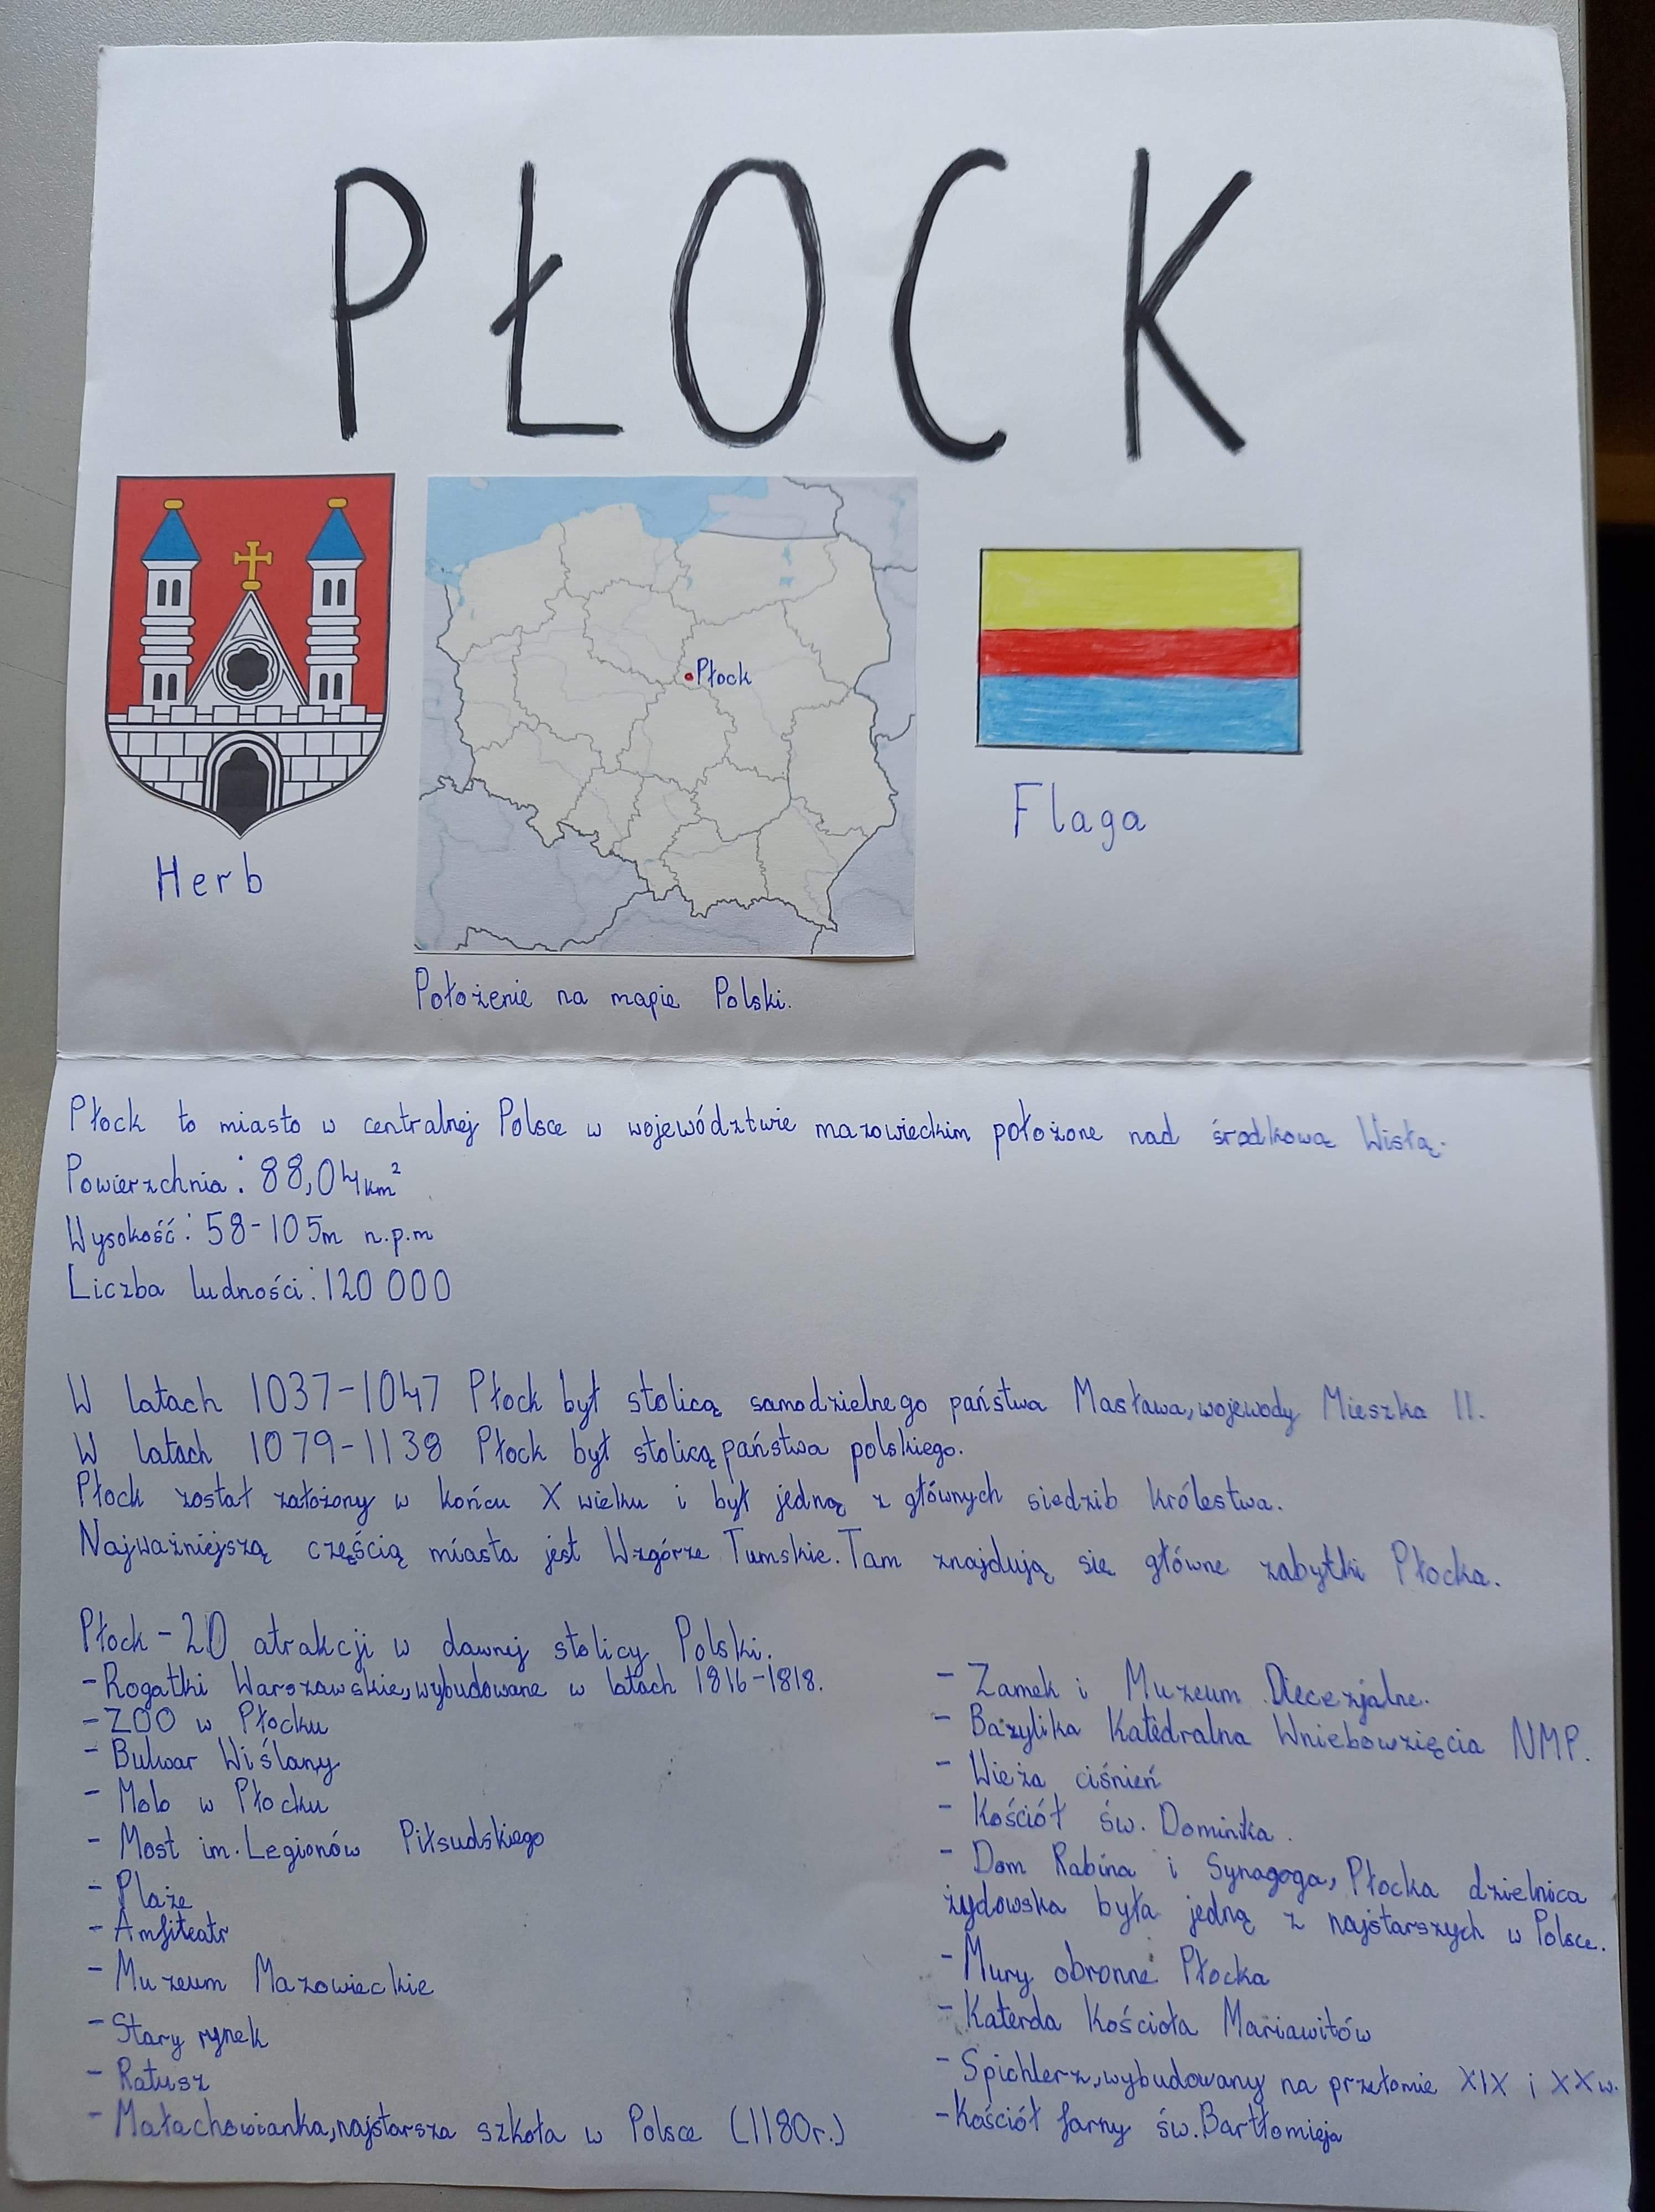 PŁOCK
Płock
Herb
Flaga
Położenie na mapie Polski.
Płock to miasto w centralnej Polsce w województwie mazowieckim położone nad środkową Wisłą.
Powierzchnia: 88,04km²
Wysokość: 58-105m n.p.m
Liczba ludności: 120 000
W latach 1037-1047 Płock był stolicą samodzielnego państwa Masława, wojewody Mieszka II.
W latach 1079-1138 Płock był stolicą państwa polskiego.
Płock został założony w końcu X wieku i był jedną z głównych siedzib królestwa.
Najważniejszą częścią miasta jest Wzgórze Tumskie. Tam znajdują się główne zabytki Płocka.
Płock - 20 atrakcji w dawnej stolicy Polski.
- Rogatki Warszawskie, wybudowane w latach 1816-1818.
- ZOO w Płocku
- Bulwar Wiślany
- Molo w Płocku
- Most im. Legionów Piłsudskiego
- Plaże
- Amfiteatr
- Muzeum Mazowieckie
- Stary rynek
- Ratusz
- Małachowianka, najstarsza szkoła w Polsce (1180r.)
- Zamek i Muzeum Diecezjalne.
- Bazylika Katedralna Wniebowzięcia NMP.
- Wieża ciśnień
- Kościół św. Dominika.
- Dom Rabina i Synagoga, Płocka dzielnica
żydowska była jedną z najstarszych w Polsce.
- Mury obronne Płocka
- Katerda Kościoła Mariawitów
- Spichlerz, wybudowany na przełomie XIX i XX w.
- Kościół farny św. Bartłomieja